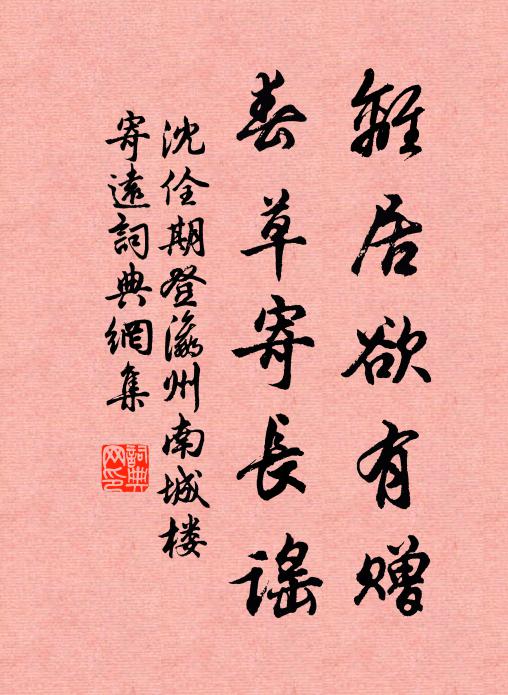 離居欲有赠
春草寄長謠
沈佺期登瀛州南城楼
寄遠詞典網集
詞典
网印